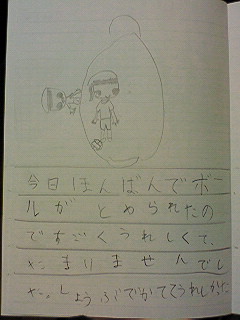 今日ほんばんでボー
ルが とめられたの
ですごくうれしくて、
たまりませんでし
た。しょうぶでかててうれしかった